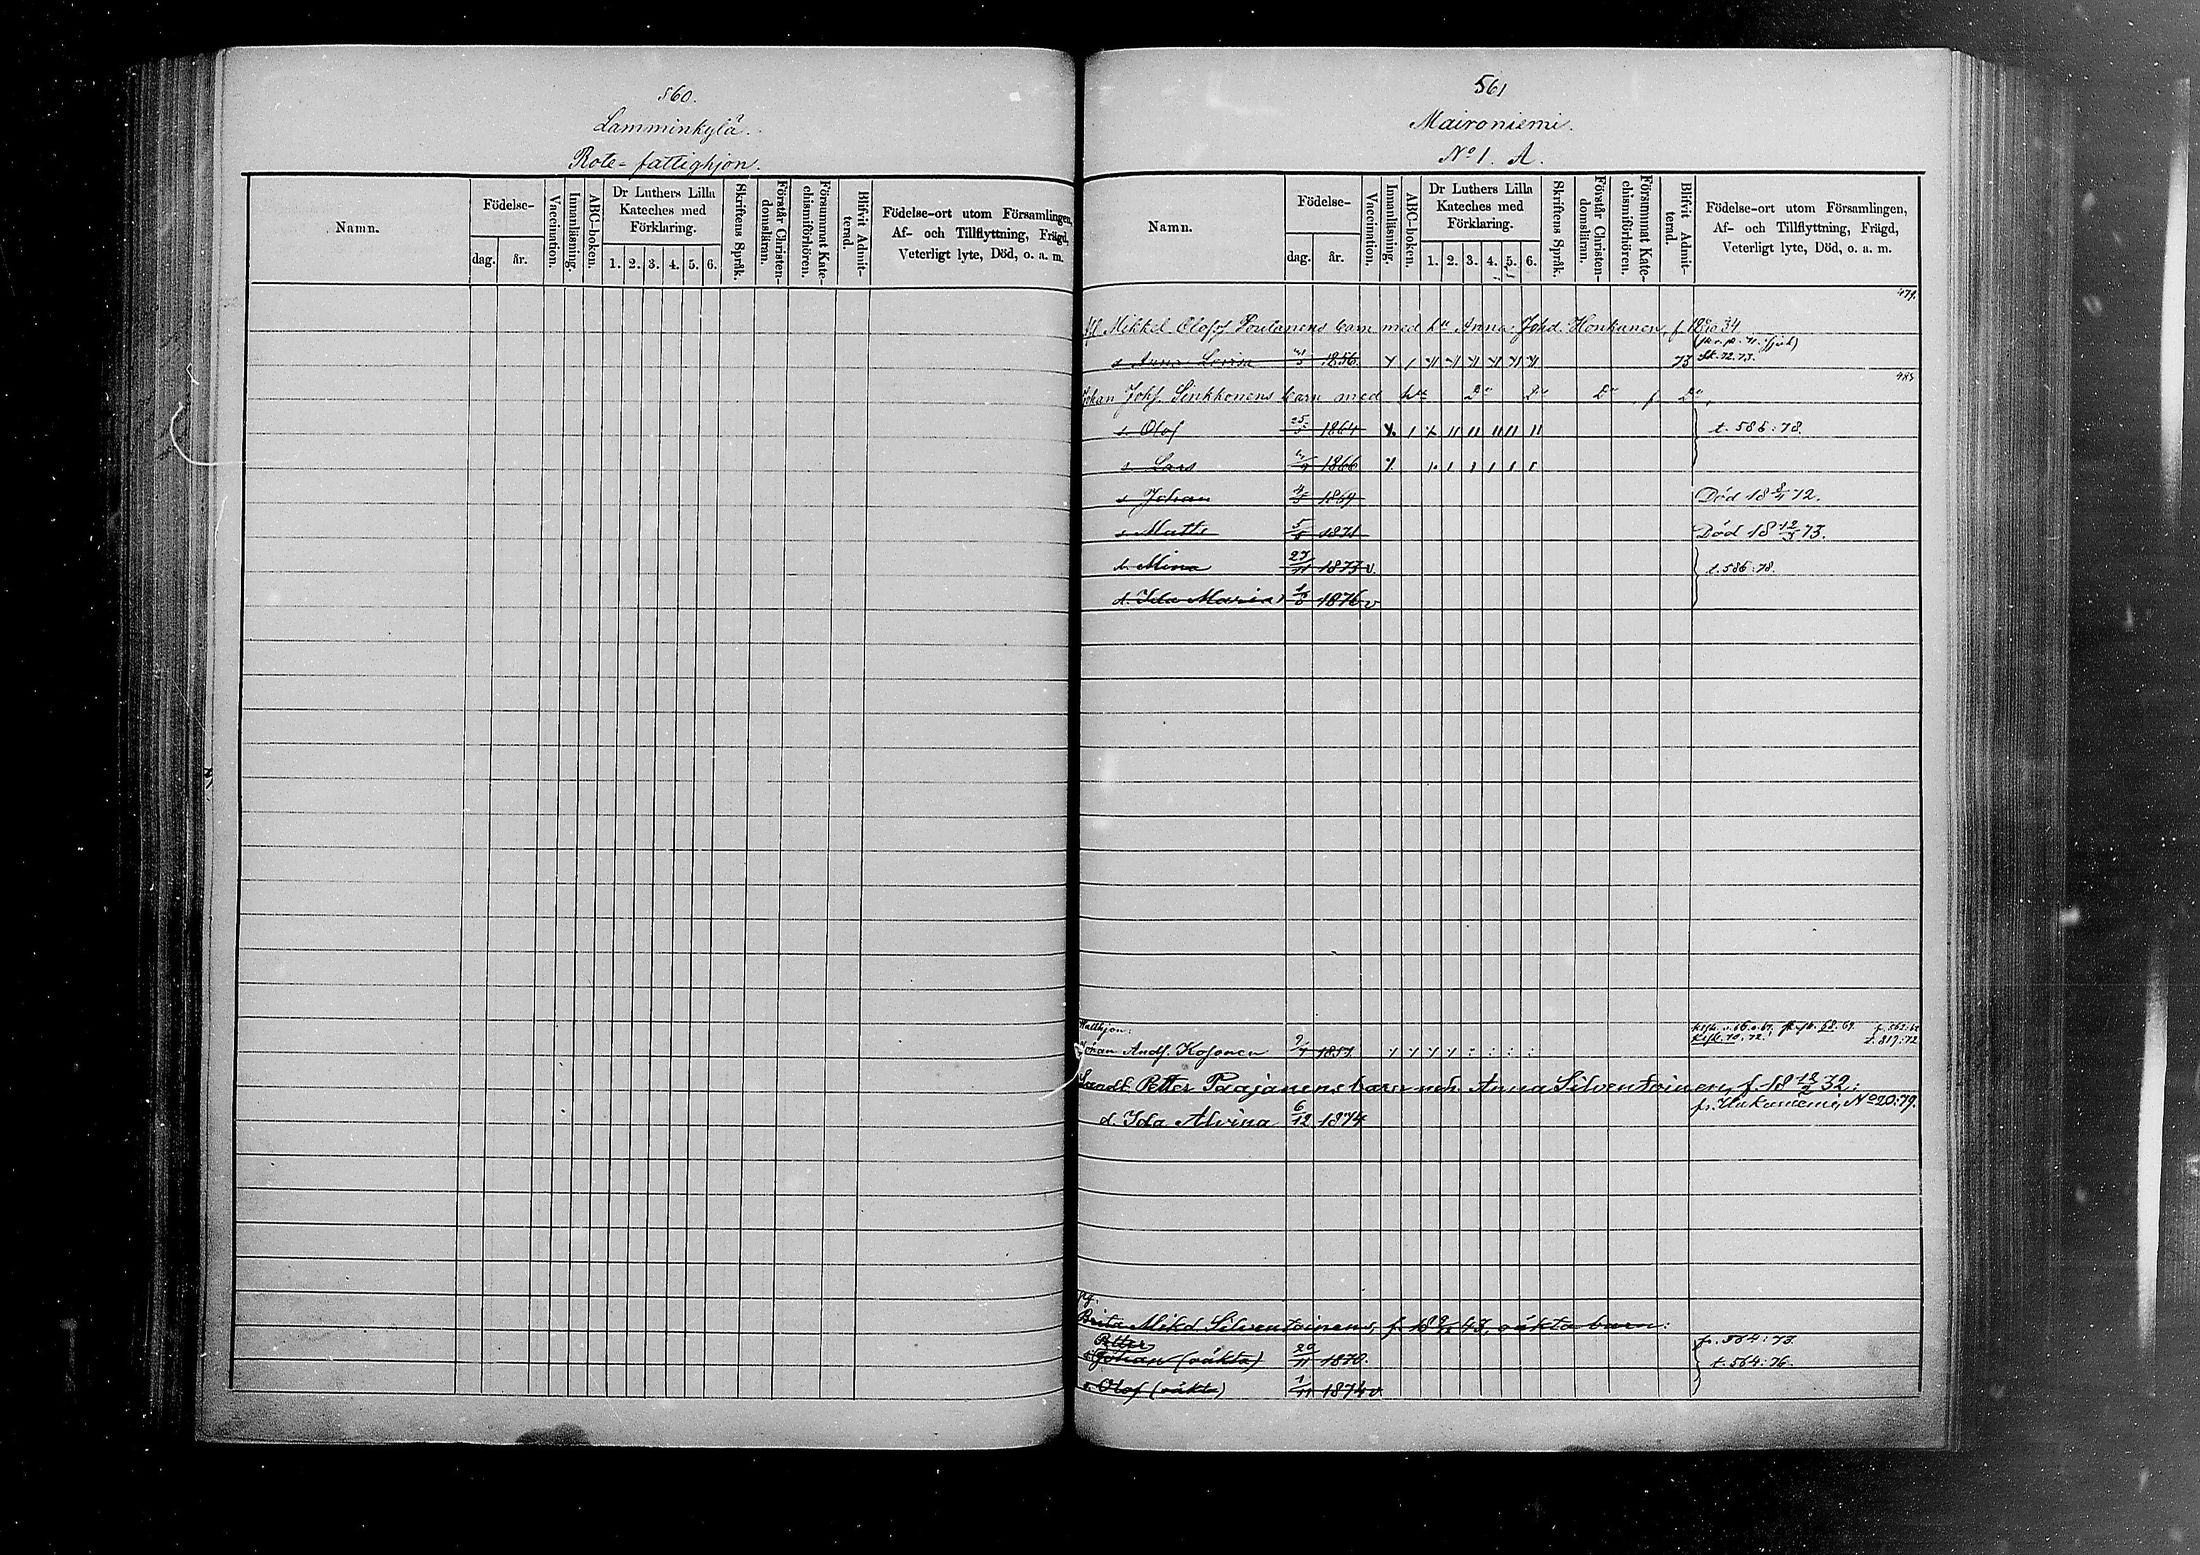 560.
Lamminkylä.
Rote-fattighjon.
Namn.
Födelse-
dag.
år.
Vaccination.
Innanläsning.
ABC-boken.
Dr Luthers Lilla
Kateches med
Förklaring.
1. 2. 3. 4. 5. 6.
Skriftens Språk.
Förstår Christen-
domsläran.
Försummat Kate-
chismiförhören.
Blifvit Admit-
terad.
Födelse-ort utom Församlingen,
Af- och Tillflyttning, Frägd,
Veterligt lyte, Död, o. a. m.
561
Maironiemi.
No 1. A.
Namn.
Födelse-
dag.
år.
Vaccination.
Innanläsning.
ABC-boken.
Dr Luthers Lilla
Kateches med
Förklaring.
1. 2. 3. 4. 5. 6.
Skriftens Språk.
Förstår Christen-
domsläran.
Försummat Kate-
chismiförhören.
Blifvit Admit-
terad.
Födelse-ort utom Församlingen,
Af- och Tillflyttning, Frägd,
Veterligt lyte, Död, o. a. m.
479.
Mikkel Olofsf Poutanens barn med Anna Johd. Honkanen, f.
Anna Lovisa 1856. 73 72.73.
Johan Johf. Sinkkonens barn med Do Do Do f. Do
s. Olof 25/5 1864 t. 586:78.
s. Lars 1866
s. Johan 1869 Död 18 8/4 72.
s. Matts 1871 Död 18 12/3 73.
d. Mina 27/11 1873 v. t. 586:78.
d. Ida Maria 1876 v
Hallhjon:
Johan Andf. Kosonen t. 819:72
Landb. Petter Paajanens barn med Anna Silventoinen, f. 18 12/2 32:
fr. Hukaniemi, No 20:79.
d. Ida Alvina 6/12 1874
Brita Mikd. Silventoinens, f. 43, oäkta barn:
Petter fr. 564:73
s. Johan (oäkta) 20/11 1870. t. 564:76.
s. Olof (oäkta) 1/11 1874 v